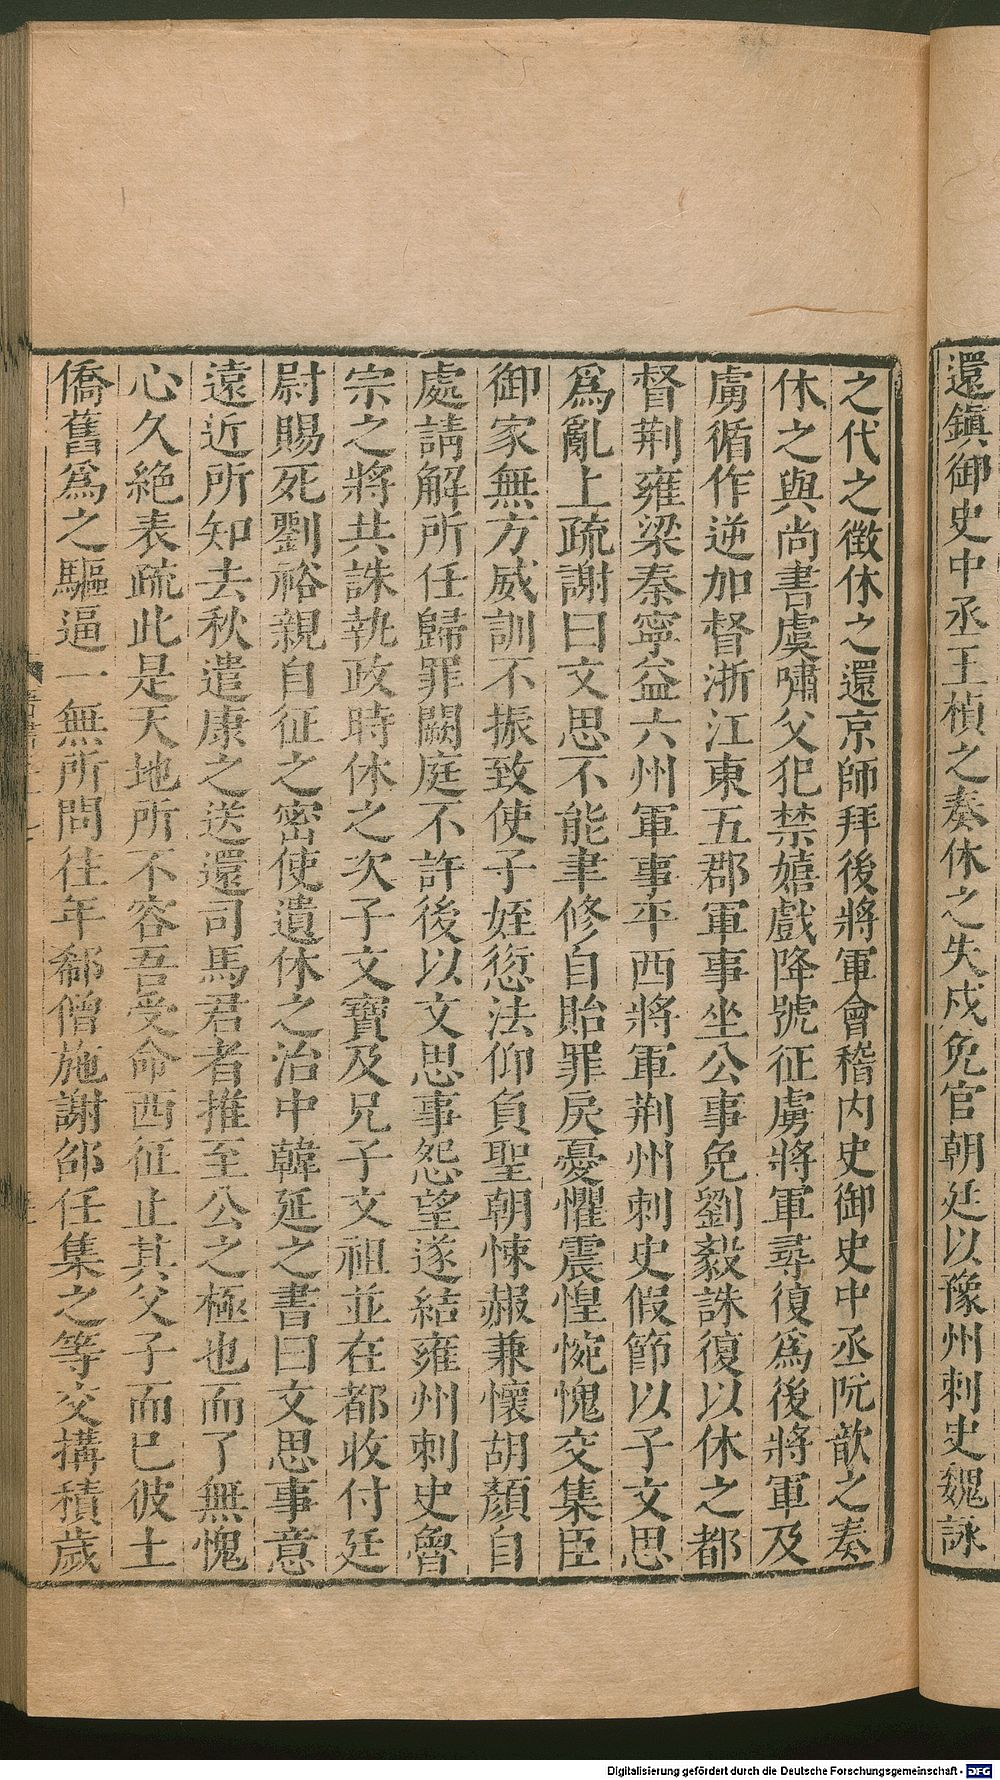 還鎮御史中丞王楨之奏休之失戍免官朝廷以豫州刺史魏詠
之代之徵休之還京師拜後將軍會稽內史御史中丞阮歆之奏
休之與尚書虞嘯父犯禁嬉戲降號征虜將軍尋復爲後將軍及
虜循作逆加督浙江東五郡軍事坐公事免劉毅誅復以休之都
督荆雍梁秦寧益六州軍事平西將軍荆州刺史假節以子文思
爲亂上疏謝曰文思不能聿修自貽罪戾憂懼震惶惋愧交集臣
御家無方威訓不振致使子姪愆法仰負聖朝悚赧兼懷胡顏自
處請解所任歸罪闕庭不許後以文思事怨望遂結雍州刺史魯
宗之將共誅執政時休之次子文寶及兄子文祖並在都收付廷
尉賜死劉裕親自征之密使遺休之治中韓延之書曰文思事意
遠近所知去秋遣康之送還司馬君者推至公之極也而了無愧
心久絶表疏此是天地所不容吾受命西征止其父子而已彼土
僑舊爲之驅逼一無所問往年郗僧施謝邵任集之等交搆積歲
Digitalisierung gefördert durch die Deutsche Forschungsgemeinschaft - DFG